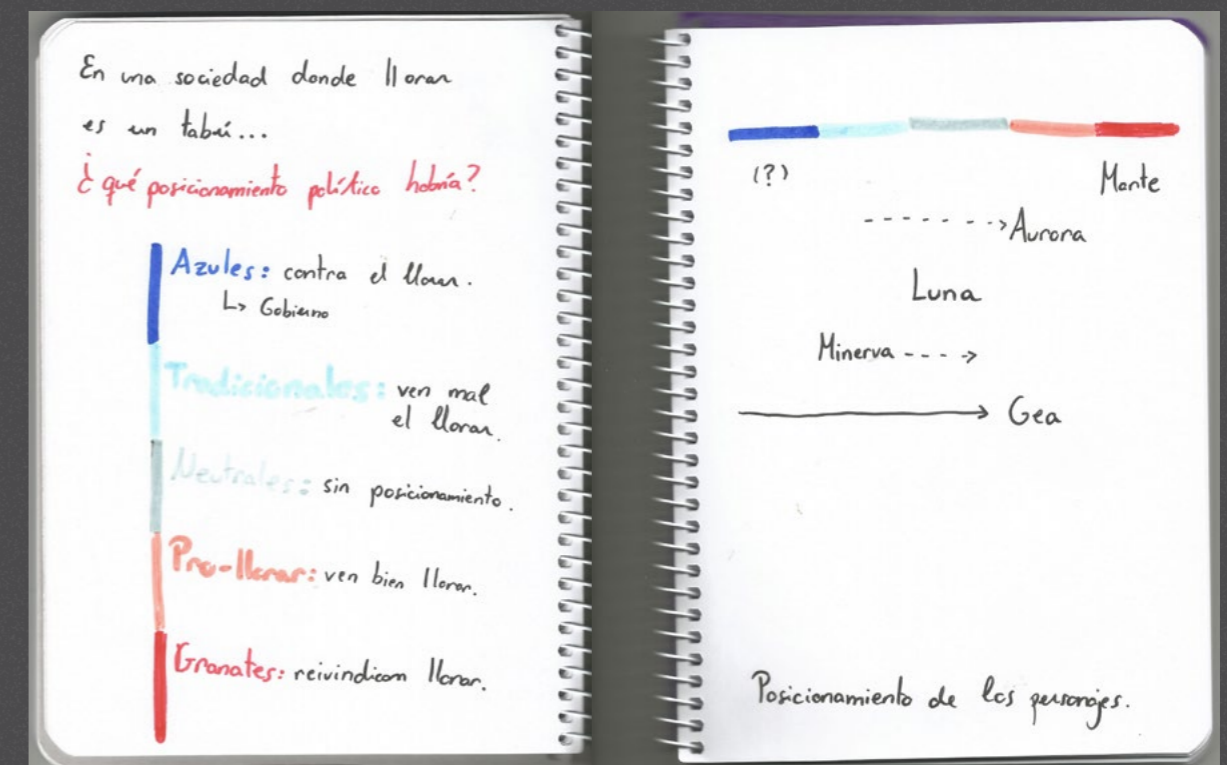 En una sociedad donde llorar
es un tabú...
¿qué posicionamiento político habría?
Azules: contra el llorar.
↳ Gobierno
Tradicionales: ven mal
el llorar.
Neutrales: sin posicionamiento.
Pro-llorar: ven bien llorar.
Granates: reivindican llorar.
(?)
Mante
Aurora
Luna
Minerva
Gea
Posicionamiento de los personajes.